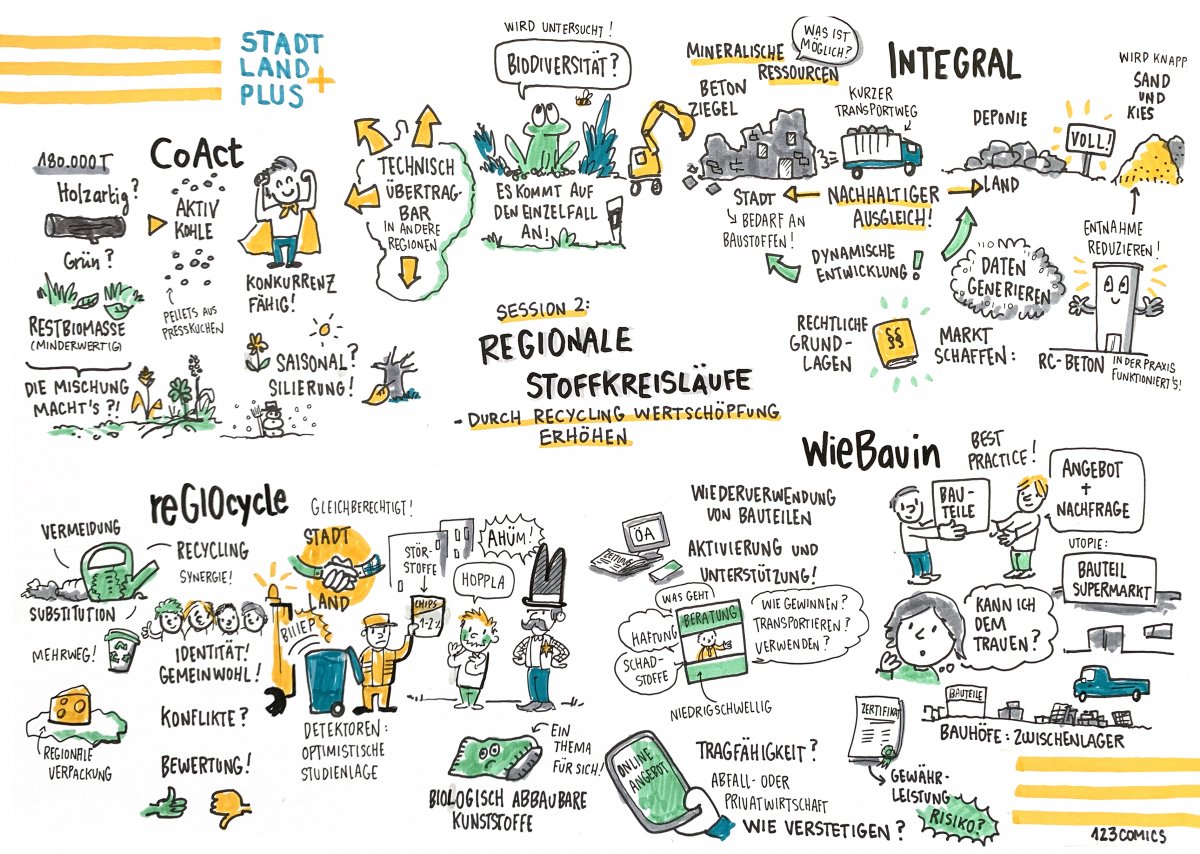 STADT
LAND
PLUS +
CoAct
180.000T
Holzartig?
Grün?
RESTBIOMASSE
(MINDERWERTIG)
DIE MISCHUNG
MACHT'S?!
AKTIV
KOHLE
PELLETS AUS
PRESSKUCHEN
KONKURRENZ
FÄHIG!
SAISONAL?
SILIERUNG!
TECHNISCH
ÜBERTRAG-
BAR
IN ANDERE
REGIONEN
WIRD UNTERSUCHT!
BIODIVERSITÄT?
ES KOMMT AUF
DEN EINZELFALL
AN!
INTEGRAL
MINERALISCHE
RESSOURCEN
WAS IST
MÖGLICH?
BETON
ZIEGEL
KURZER
TRANSPORTWEG
DEPONIE
VOLL!
WIRD KNAPP
SAND
UND
KIES
STADT
BEDARF AN
BAUSTOFFEN!
NACHHALTIGER
AUSGLEICH!
LAND
DYNAMISCHE
ENTWICKLUNG!
DATEN
GENERIEREN
ENTNAHME
REDUZIEREN!
RECHTLICHE
GRUND-
LAGEN
§§
MARKT
SCHAFFEN:
RC-BETON
IN DER PRAXIS
FUNKTIONIERT'S!
SESSION 2:
REGIONALE
STOFFKREISLÄUFE
- DURCH RECYCLING WERTSCHÖPFUNG
ERHÖHEN
reGIOcycle
VERMEIDUNG
RECYCLING
SYNERGIE!
SUBSTITUTION
MEHRWEG!
REGIONALE
VERPACKUNG
IDENTITÄT!
GEMEINWOHL!
KONFLIKTE?
BEWERTUNG!
GLEICHBERECHTIGT!
STADT
LAND
BIIIEP
STÖR-
STOFFE
CHIPS
1-2%
HOPPLA
AHÜM!
DETEKTOREN:
OPTIMISTISCHE
STUDIENLAGE
EIN
THEMA
FÜR SICH!
BIOLOGISCH ABBAUBARE
KUNSTSTOFFE
WieBauin
BEST
PRACTICE!
WIEDERVERWENDUNG
VON BAUTEILEN
ÖA
ZEITUNG
AKTIVIERUNG UND
UNTERSTÜTZUNG!
WAS GEHT
BERATUNG
HAFTUNG
SCHAD-
STOFFE
WIE GEWINNEN?
TRANSPORTIEREN?
VERWENDEN?
NIEDRIGSCHWELLIG
ONLINE
ANGEBOT
TRAGFÄHIGKEIT?
ABFALL- ODER
PRIVATWIRTSCHAFT
WIE VERSTETIGEN?
BAU-
TEILE
ANGEBOT
+
NACHFRAGE
UTOPIE:
BAUTEIL
SUPERMARKT
KANN ICH
DEM
TRAUEN?
ZERTIFIKAT
BAUTEILE
BAUHÖFE: ZWISCHENLAGER
GEWÄHR-
LEISTUNG
RISIKO?
123COMICS